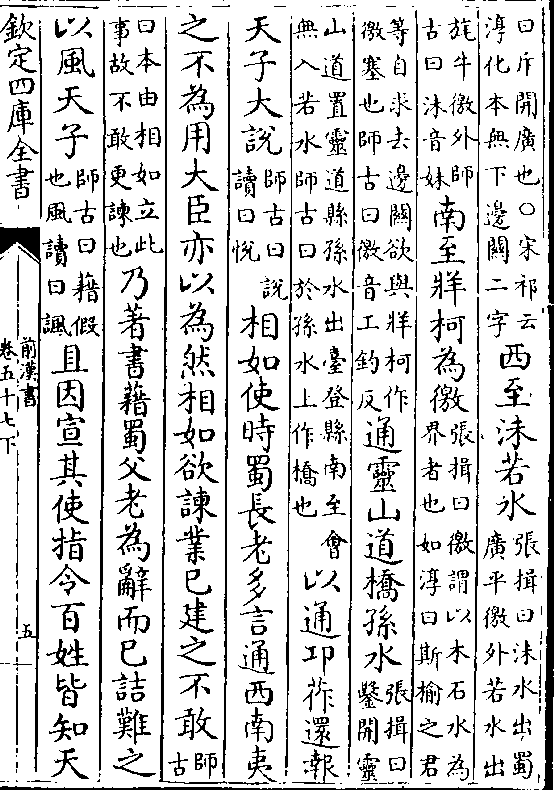 曰斥開廣也○宋祁云淳化本無下邊關二字西至沬若水張揖曰沬水出蜀廣平徼外若水出
旄牛徼外師古曰沬音妹南至牂柯為徼張揖曰徼謂以木石水為界者也如淳曰斯榆之君
等自求去邊關欲與牂柯作徼塞也師古曰徼音工釣反通靈山道橋孫水張揖曰鑿開靈
山道置靈道縣孫水出臺登縣南至會無入若水師古曰於孫水上作橋也以通卭莋還報
天子大說師古曰說讀曰悅相如使時蜀長老多言通西南夷
之不為用大臣亦以為然相如欲諫業已建之不敢師古
曰本由相如立此事故不敢更諫也乃著書藉蜀父老為辭而已詰難之
以風天子師古曰藉假也風讀曰諷且因宣其使指令百姓皆知天
欽定四庫全書
前漢書
卷五十七下
五